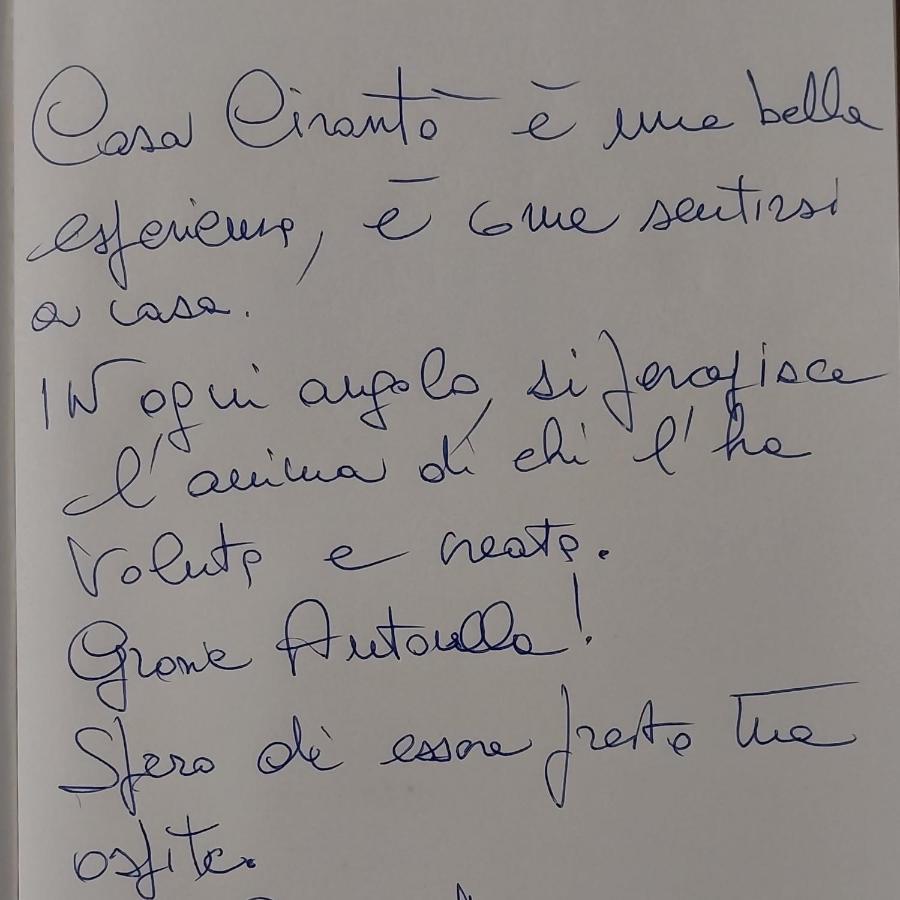 Casa Cirantò è una bella
esperienza, è come sentirsi
a casa.
IN ogni angolo, si percepisce
l'anima di chi l'ha
Voluta e creata.
Grazie Antonella!
Spero di essere presto tua
ospite.